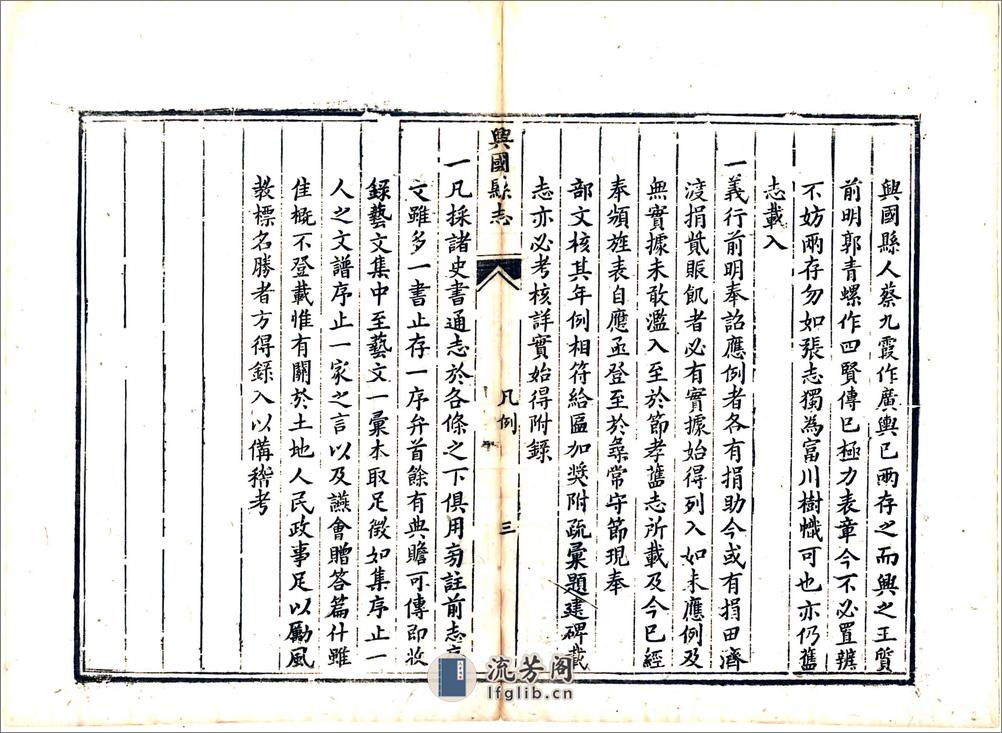 興國縣人蔡九霞作廣輿已兩存之而興之王質
前明郭青螺作四賢傳已極力表章今不必置辨
不妨兩存勿如張志獨為富川樹幟可也亦仍舊
志載入
一義行前明奉詔應例者各有捐助今或有捐田濟
渡捐貲賑飢者必有實據始得列入如未應例及
無實據未敢濫入至於節孝舊志所載及今已經
奉頒旌表自應亟登至於尋常守節現奉
部文核其年例相符給匾加奬附疏彙題建碑載
志亦必考核詳實始得附錄
興國縣志
凡例
三
一凡採諸史書通志於各條之下俱用旁註前志序
文雖多一書止存一序弁首餘有典贍可傳即收
錄藝文集中至藝文一彙本取足徵如集序止一
人之文譜序止一家之言以及讌會贈答篇什雖
佳概不登載惟有關於土地人民政事足以勵風
教標名勝者方得錄入以備稽考
流芳阁
lfglib.cn